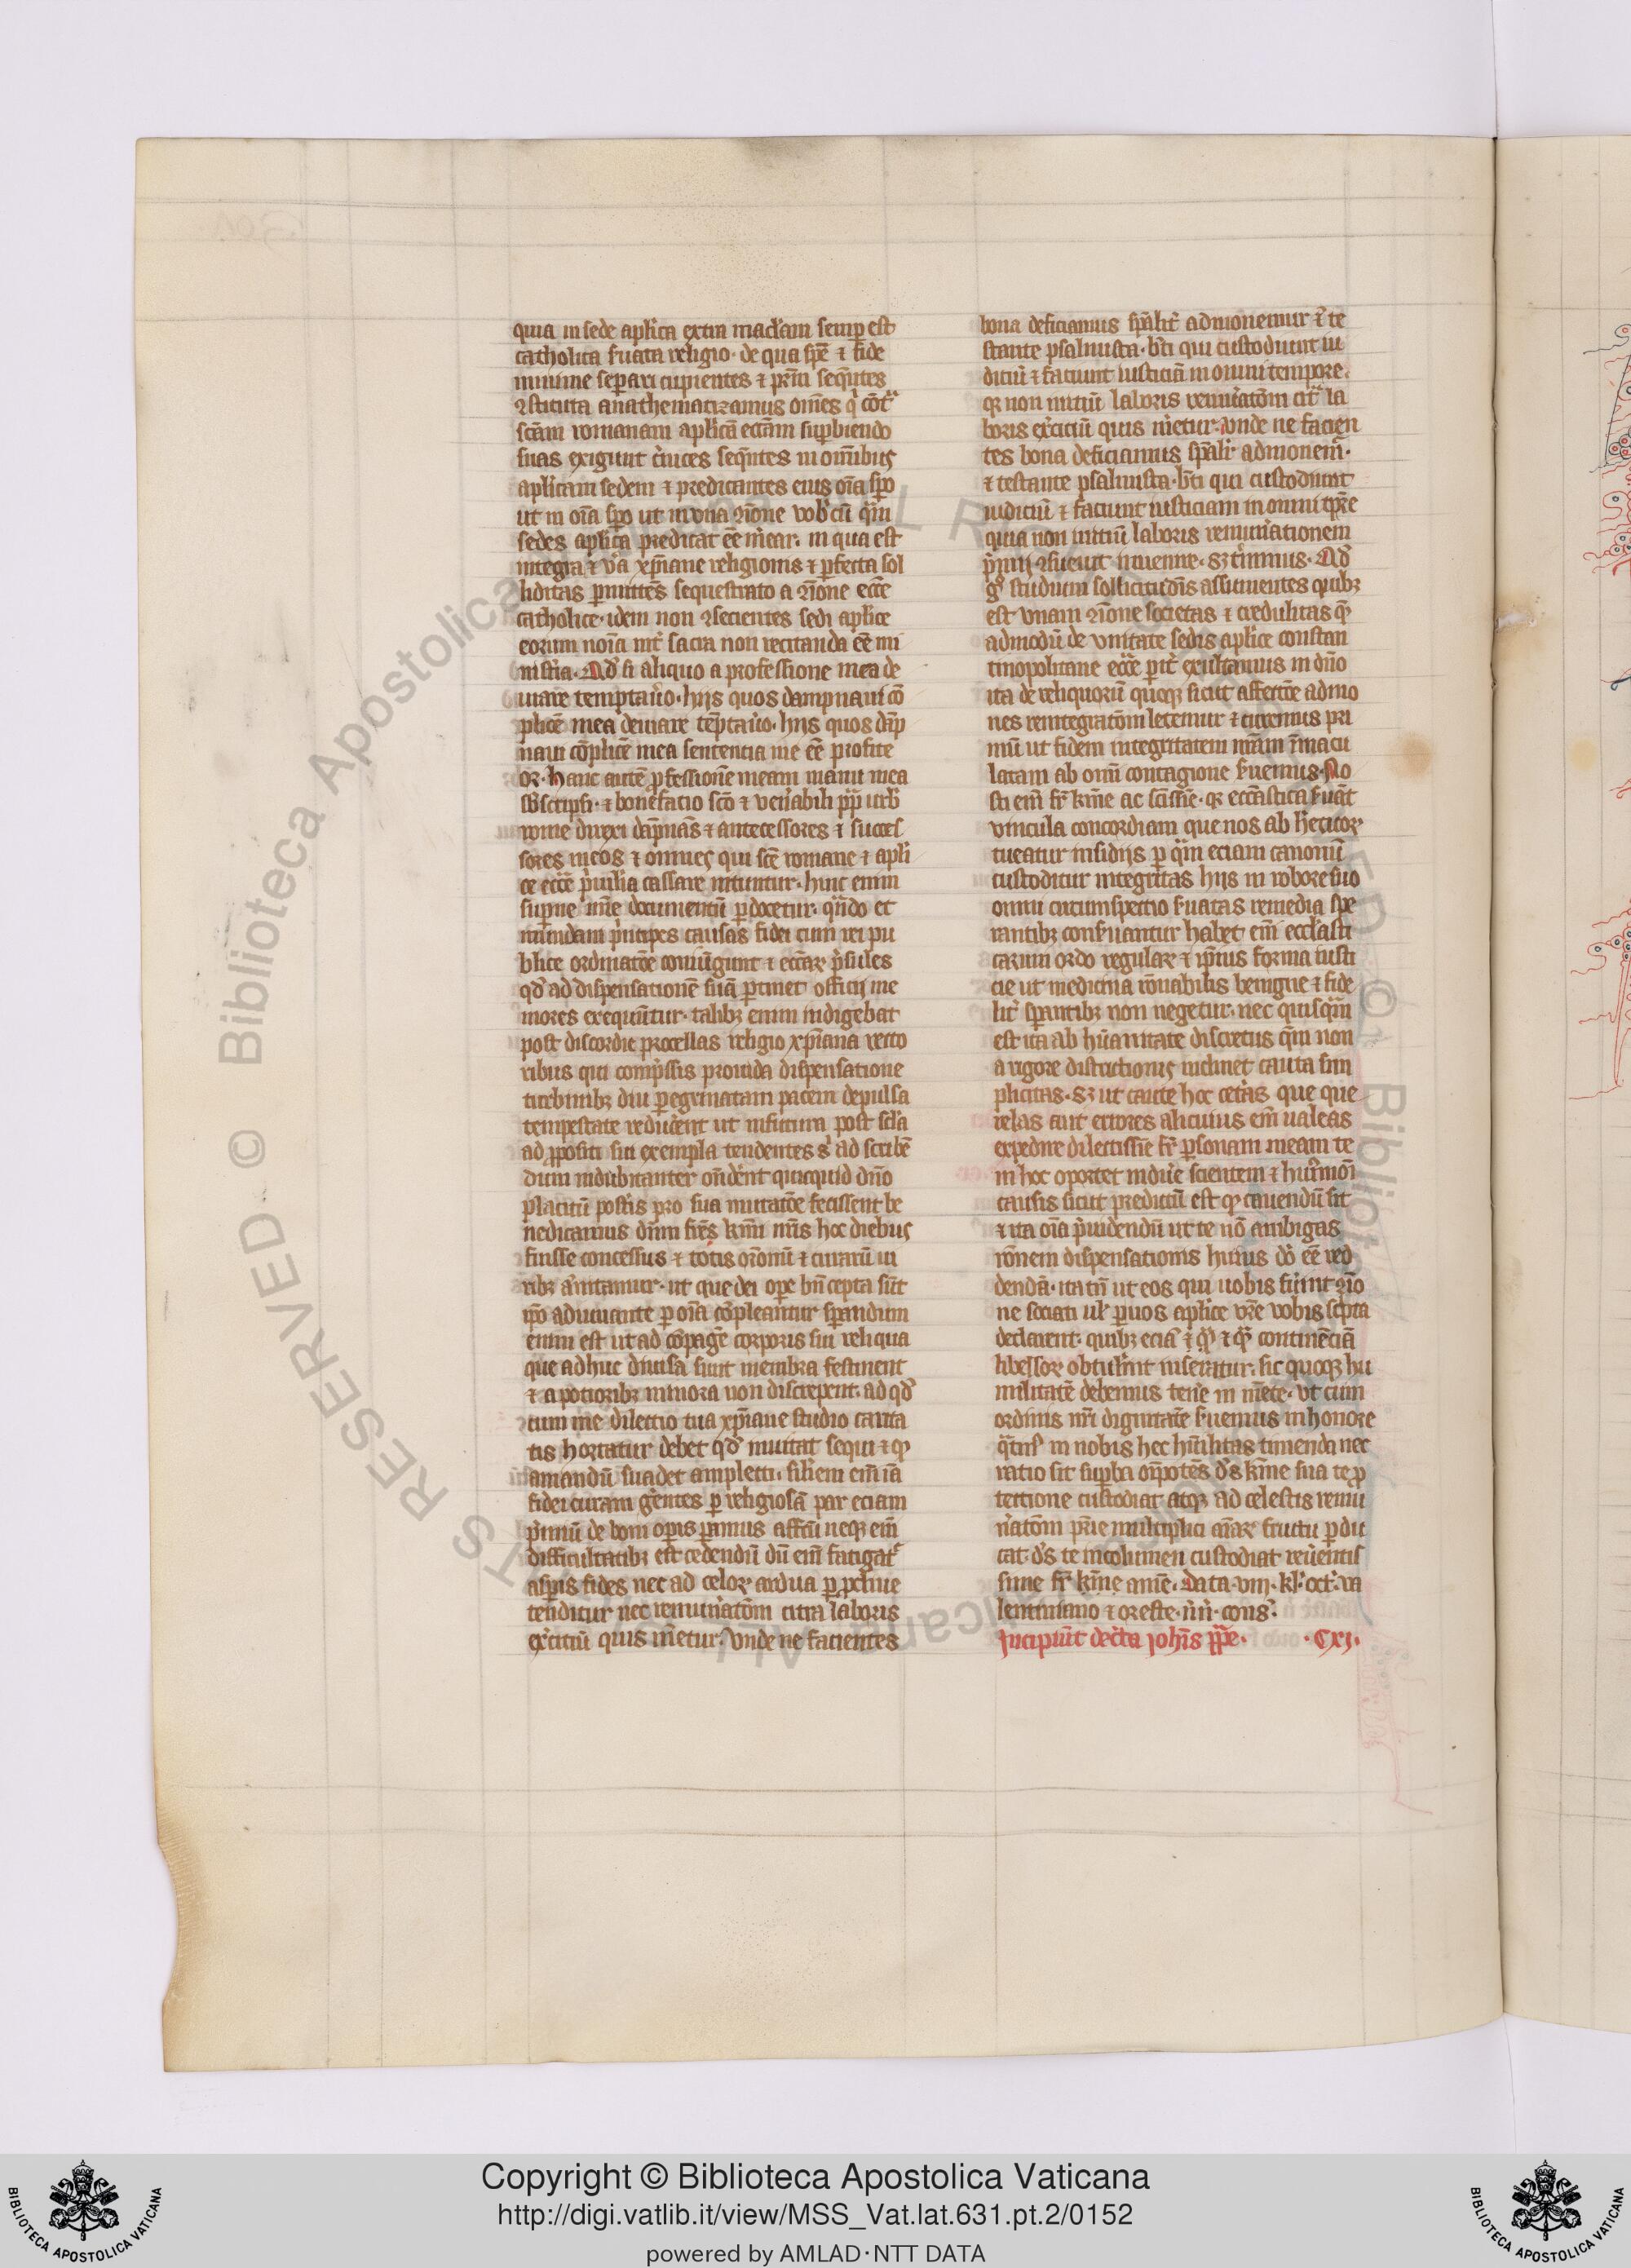 quia in sede aplica extra maclam semp est
catholica suata religio· de qua spe & fide
minime separi cupientes & prm sequtes
ꝯstituta anathematizamus omes q cot
scam romanam aplica eccam supbiendo
suas exigunt cruces sequtes in omnibus
aplicam sedem & predicantes eius oia
sedes aplica predicat ee merear· in qua est
integra & va xpiane religionis & pfecta sol
liditas
catholice· idem non ꝯsecientes sedi aplice
eorum noia int sacra non recitanda ee mi
nistia· Ad si aliquo a professione mea de
uiare temptauo· hijs quos dampnaui co
plice mea deuiare teptauo· hijs quos dap
naui coplice mea sentencia me ee profite
or· hanc aute pfessione meam manu mea
sbscripsi· & bonefatio sco & venabili pp urb
rome direxi dapnas & antecessores & succes
sores meos & omnes qui sce romane & apli
ce ecce puilia cassare nituntur· hinc enim
supne documentu pdocetur· qudo et
mundam pncipes causas fidei cum rei pu
blice ordinatoe coniugunt & eccar psules
qd ad dispensatione sua ptinet officij me
mores exequntur· talibz enim indigebat
post discordie procellas religio xpiana recto
ribus qui compssis prouida dispensatione
turbinibz diu pegrinatam pacem depulsa
tempestate reducent ut infutura post scla
ad ppositi sui exempla tendentes s ad scribe
dum indubitanter ondent quicquid dno
placitu postis pro sua mutatoe fecissent be
nedicamus dnm frs kmi nris hoc diebus
fuisse concessus & totis oronu & curaru ui
ribz anitamur· ut que dei ope bn cepta sut
ipo adiuuante p oia copleantur spandum
enim est ut ad copage corporis sui reliqua
que adhuc diuisa sunt membra festinent
& a potioribz minora non discrepent· ad qd
cum me dilectio tua xpiane studio carita
tis hortatur debet qd inuitat sequi & qp
amandu suadet amplecti· silem em ia
fidei curam gerentes p religiosa par eciam
pimu de boni opis pamus affcu neqz em
difficultatibz est cedendu du em fatigat
aspis fides nec ad celor ardua p pcliue
tenditur nec remunatom citra laboris
excitiu quis metur· Vnde ne facientes
bona deficiamus spalit admonemur & te
stante psalmista· bti qui custodiunt iu
diciu & faciunt iusticia in omni tempore·
qz non initiu laboris remuatom cit la
boris excitiu quis metur· vnde ne facien
tes bona deficiamus spalit admonem·
& testante psalmista· bti qui custodiunt
iudiciu & faciunt iusticiam in omni tpre
quia non initiu laboris remunationem
Ad
g studium sollicitudis assumentes quibz
est vnam ꝯione societas & credulitas q
admodu de vnitate sedis aplice constan
tinopolitane ecce pit exultamus in dno
ita de reliquoru quoqz sicut affectoe admo
nes reintegratom letemur & curemus pri
mu ut fidem integritatem nram inmacu
latam ab omi contagione suemus· No
sti em fr kme ac scissie· qz eccastica suat
vincula concordiam que nos ab heticor
tueatur insidijs p qm eciam canonu
custoditur integritas hijs in robore suo
omni circumspectio suatas remedia spe
rantibz consuantur habet em ecclasti
carum ordo regulare & ipius forma iusti
cie ut medicina ronabilis benigne & fide
lit spantibz non negetur· nec quisqm
est ita ab huanitate discretus qm non
a rigore districtionis inclinet cauta sim
plicitas· sz ut caute hoc cetas que que
relas aut errores alicuius em ualeas
expedire dilectissie fr psonam meam te
in hoc oportet indue scientem &
causis sicut predictu est qp cauendu sit
& ita oia puidendu ut te no ambigas
ronem dispensationis huius do ee red
denda· ita tn ut eos qui uobis fuint ꝯio
ne sociati ul p uos aplice vre vobis scpta
declarent· quibz ecia & & continecia
libessor obtulint inseratur· sic quoqz hu
militate debemus tene in mete· vt cum
ordinis nri dignitate suemus in honore
qtns in nobis hec huilitas timenda nec
ratio sit supba oipotes ds kme sua te p
tectione custodiat atqz ad celestis remu
natom prie multiplici aiar fructu pdu
cat· ds te incolumen custodiat reuentis
sime fr kme ame· Data· viii· kl· oct· va
lentiniano & oreste· vv· cons·
Incipiut decta johis ppe· · Cxj·
Copyright © Biblioteca Apostolica Vaticana
http://digi.vatlib.it/view/MSS_Vat.lat.631.pt.2/0152
powered by AMLAD·NTT DATA
BIBLIOTECA APOSTOLICA VATICANA
BIBLIOTECA APOSTOLICA VATICANA